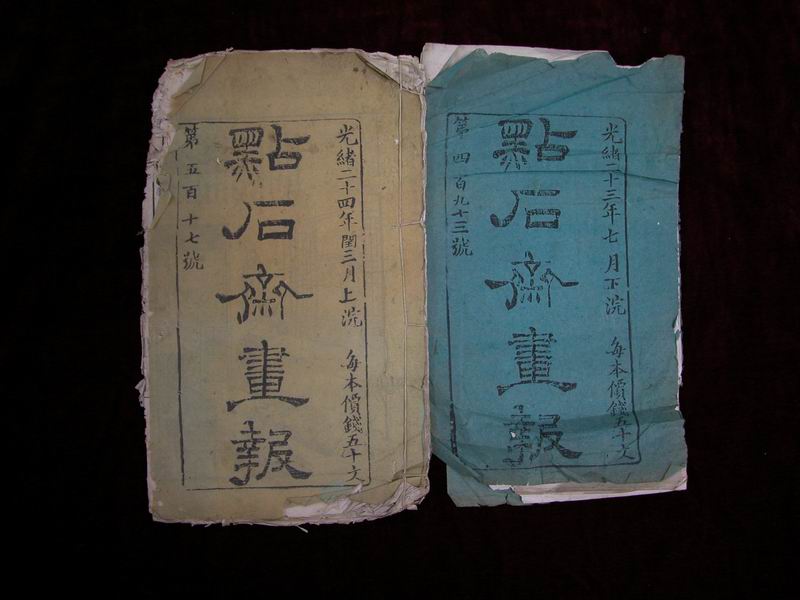 光緒二十四年閏三月上浣 每本價錢五十文
點石齋畫報
第五百十七號
光緒二十三年七月下浣 每本價錢五十文
點石齋畫報
第四百九十三號